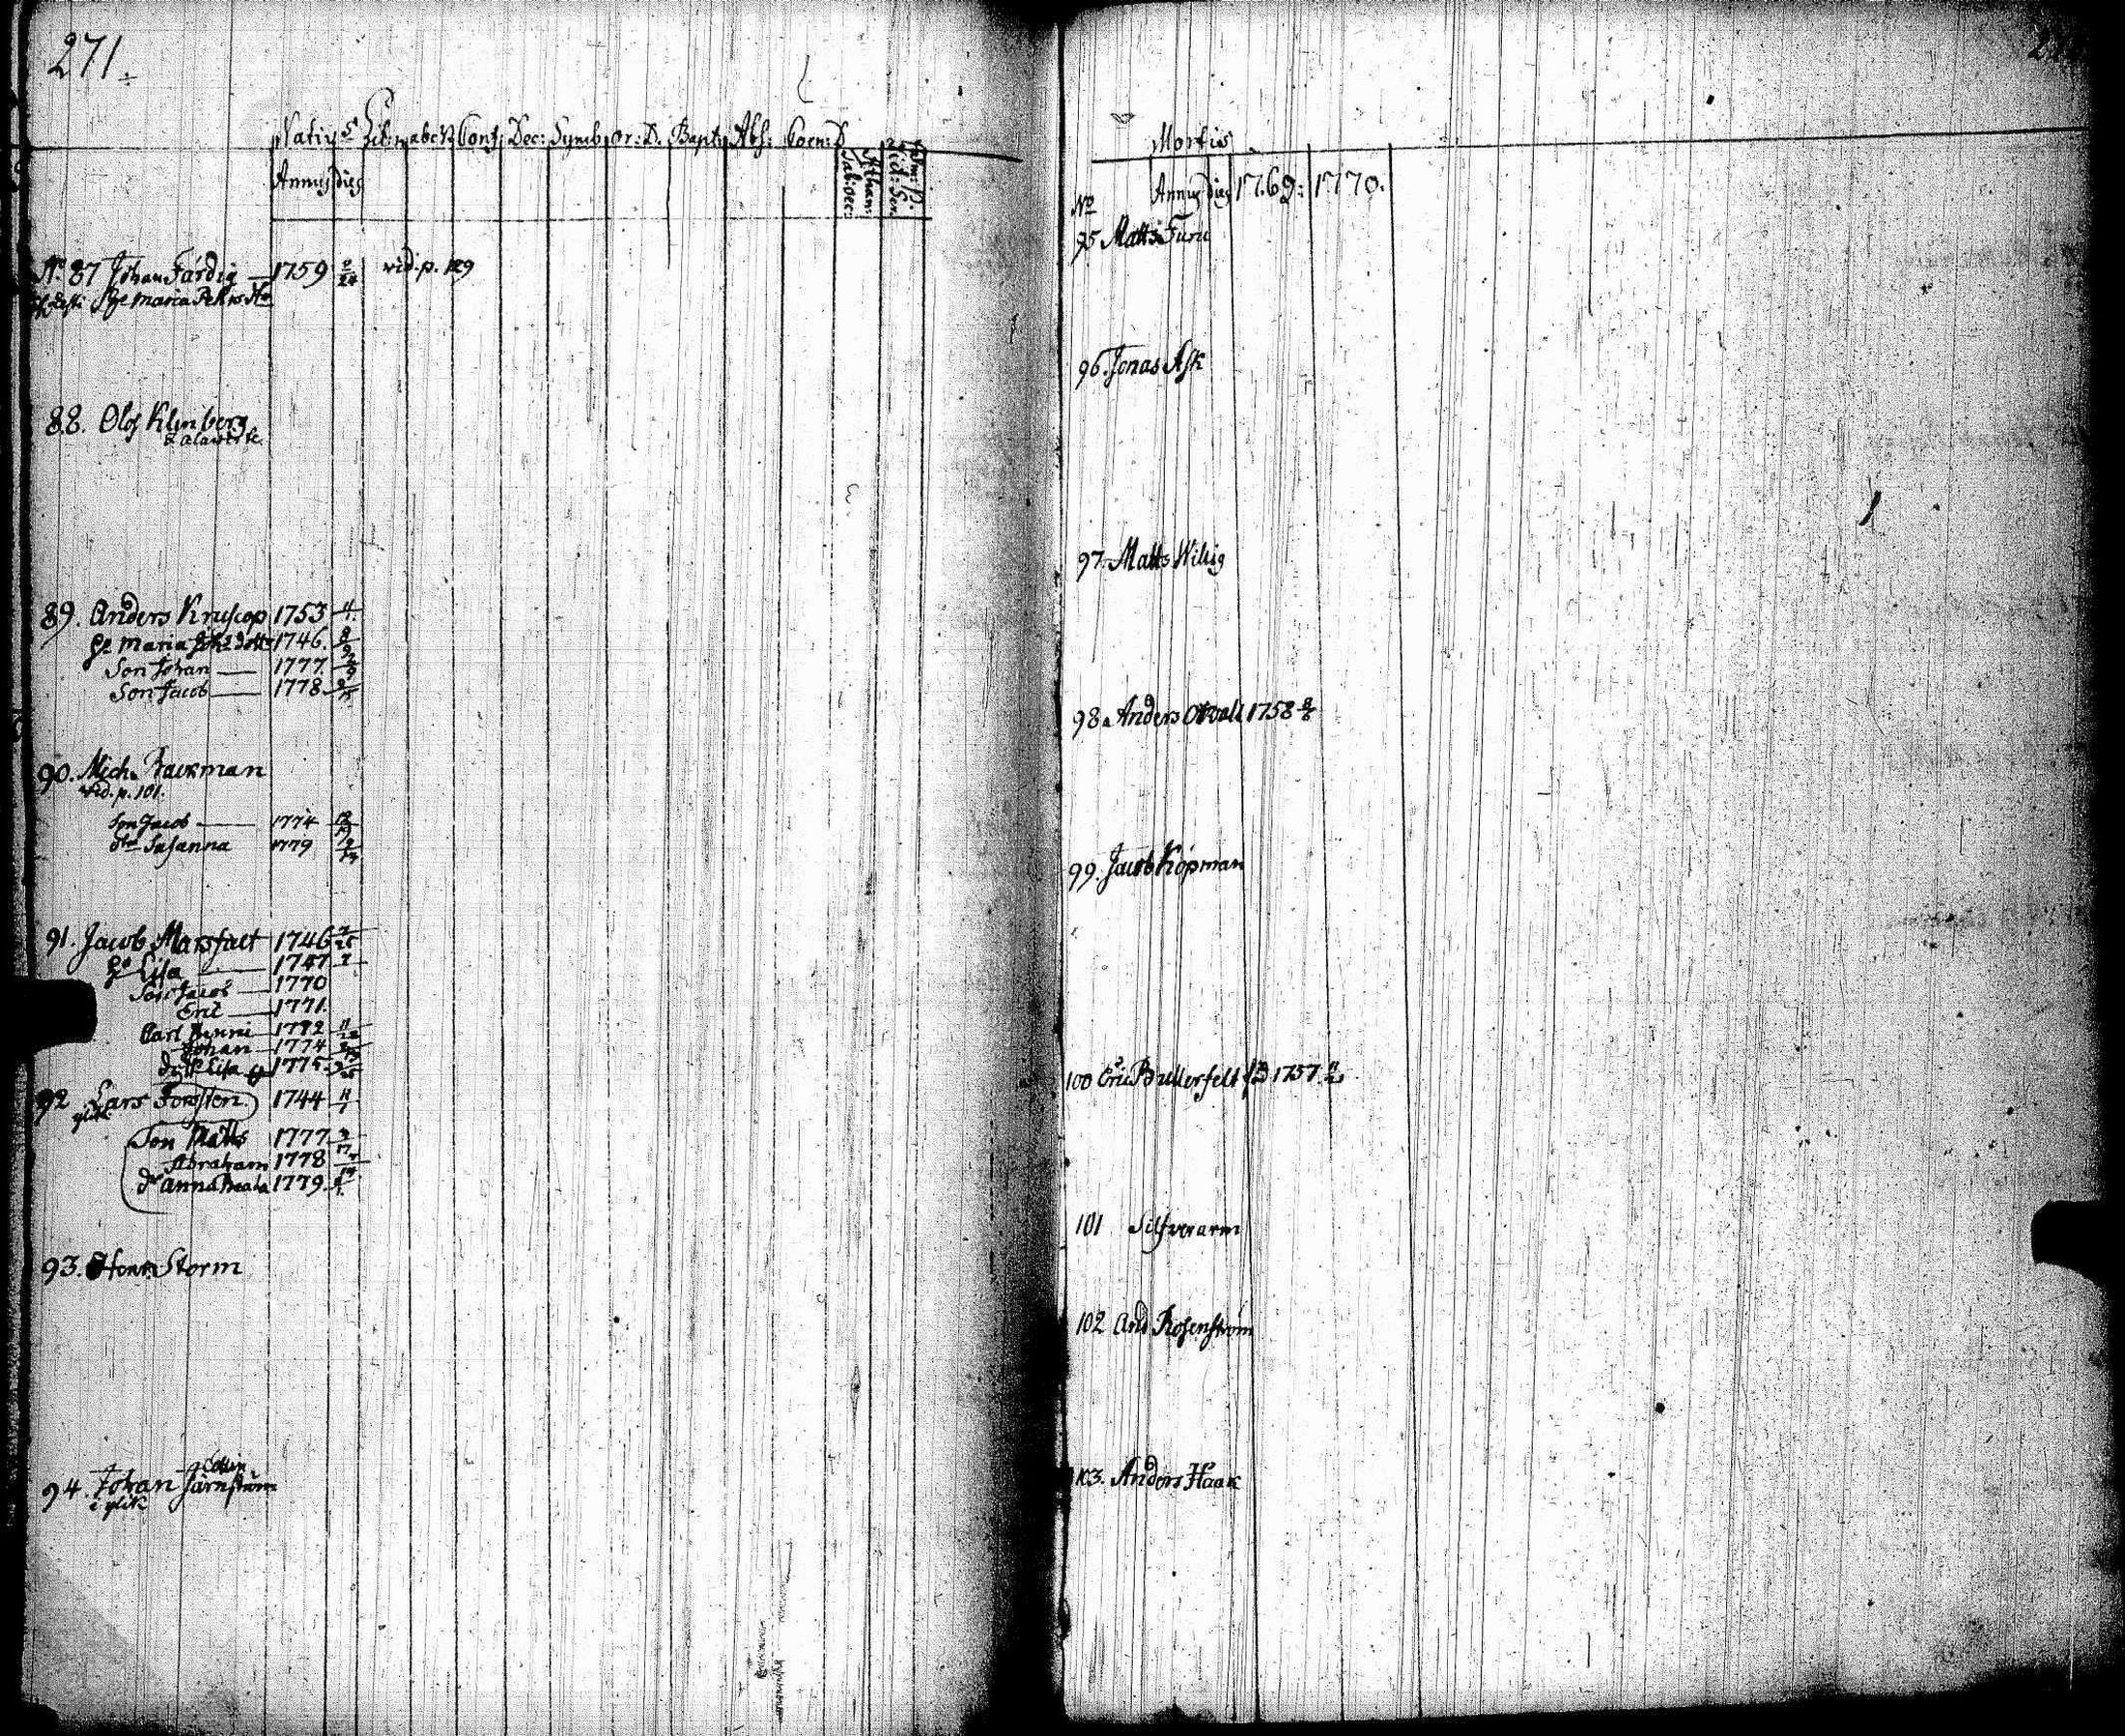 271.
Nativ. Lib: abc Conf. Dec: Symb. or: D. Bapt: Abs: Coen: D
Annus dies
Athan:
No 87 Johan Färdig — 1759 2/24 vid. p. 129
Maria
88. Olof Klinberg
89. Anders Kruscop 1753 4
Maria 1746. 8
Son Johan — 1777
Son Jacob — 1778
90. Mich. Backman
vid. p. 101.
Son Jacob — 1774
Susanna 1779
91. Jacob Marsfält 1746
Lisa — 1747
Son Jacob — 1770
Eric — 1771.
Carl 1772 11
Johan — 1774
Lisa 1775
92 Lars Forsten 1744 11/1
Son Matts 1777
Abraham 1778
dr anna Beata 1779.
93. Henr. Storm
Collin
94. Johan Järnström
Mortis
No Annus dies 1769: 1770.
95 Matts Furu
96. Jonas Ask
97. Matts Willig
98. Anders 1758
99. Jacob Köpman
100 Eric Bullerfelt 1757
101 Silfverarm
102 And Rosenström
103. Anders Haak